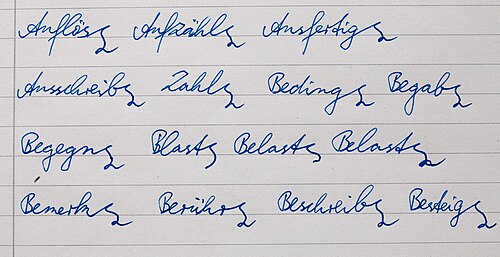 Auflös Aufzähl Ausfertig
Ausschreib Zahl Beding Begab
Begegn Blast Belast Belast
Bemerk Berühr Beschreib Besteig